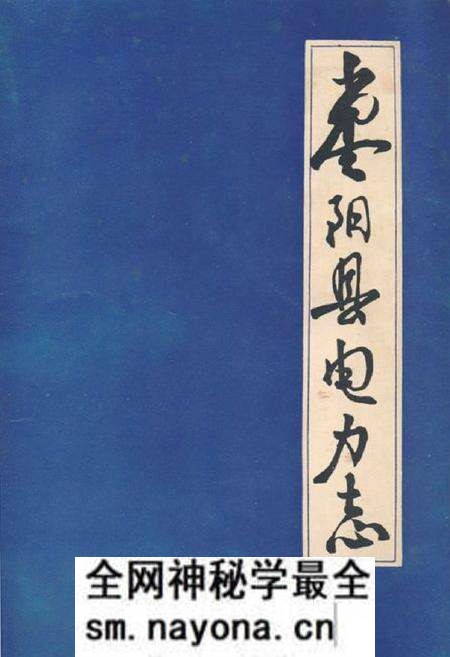 枣阳县电力志
全网神秘学最全
sm.nayona.cn